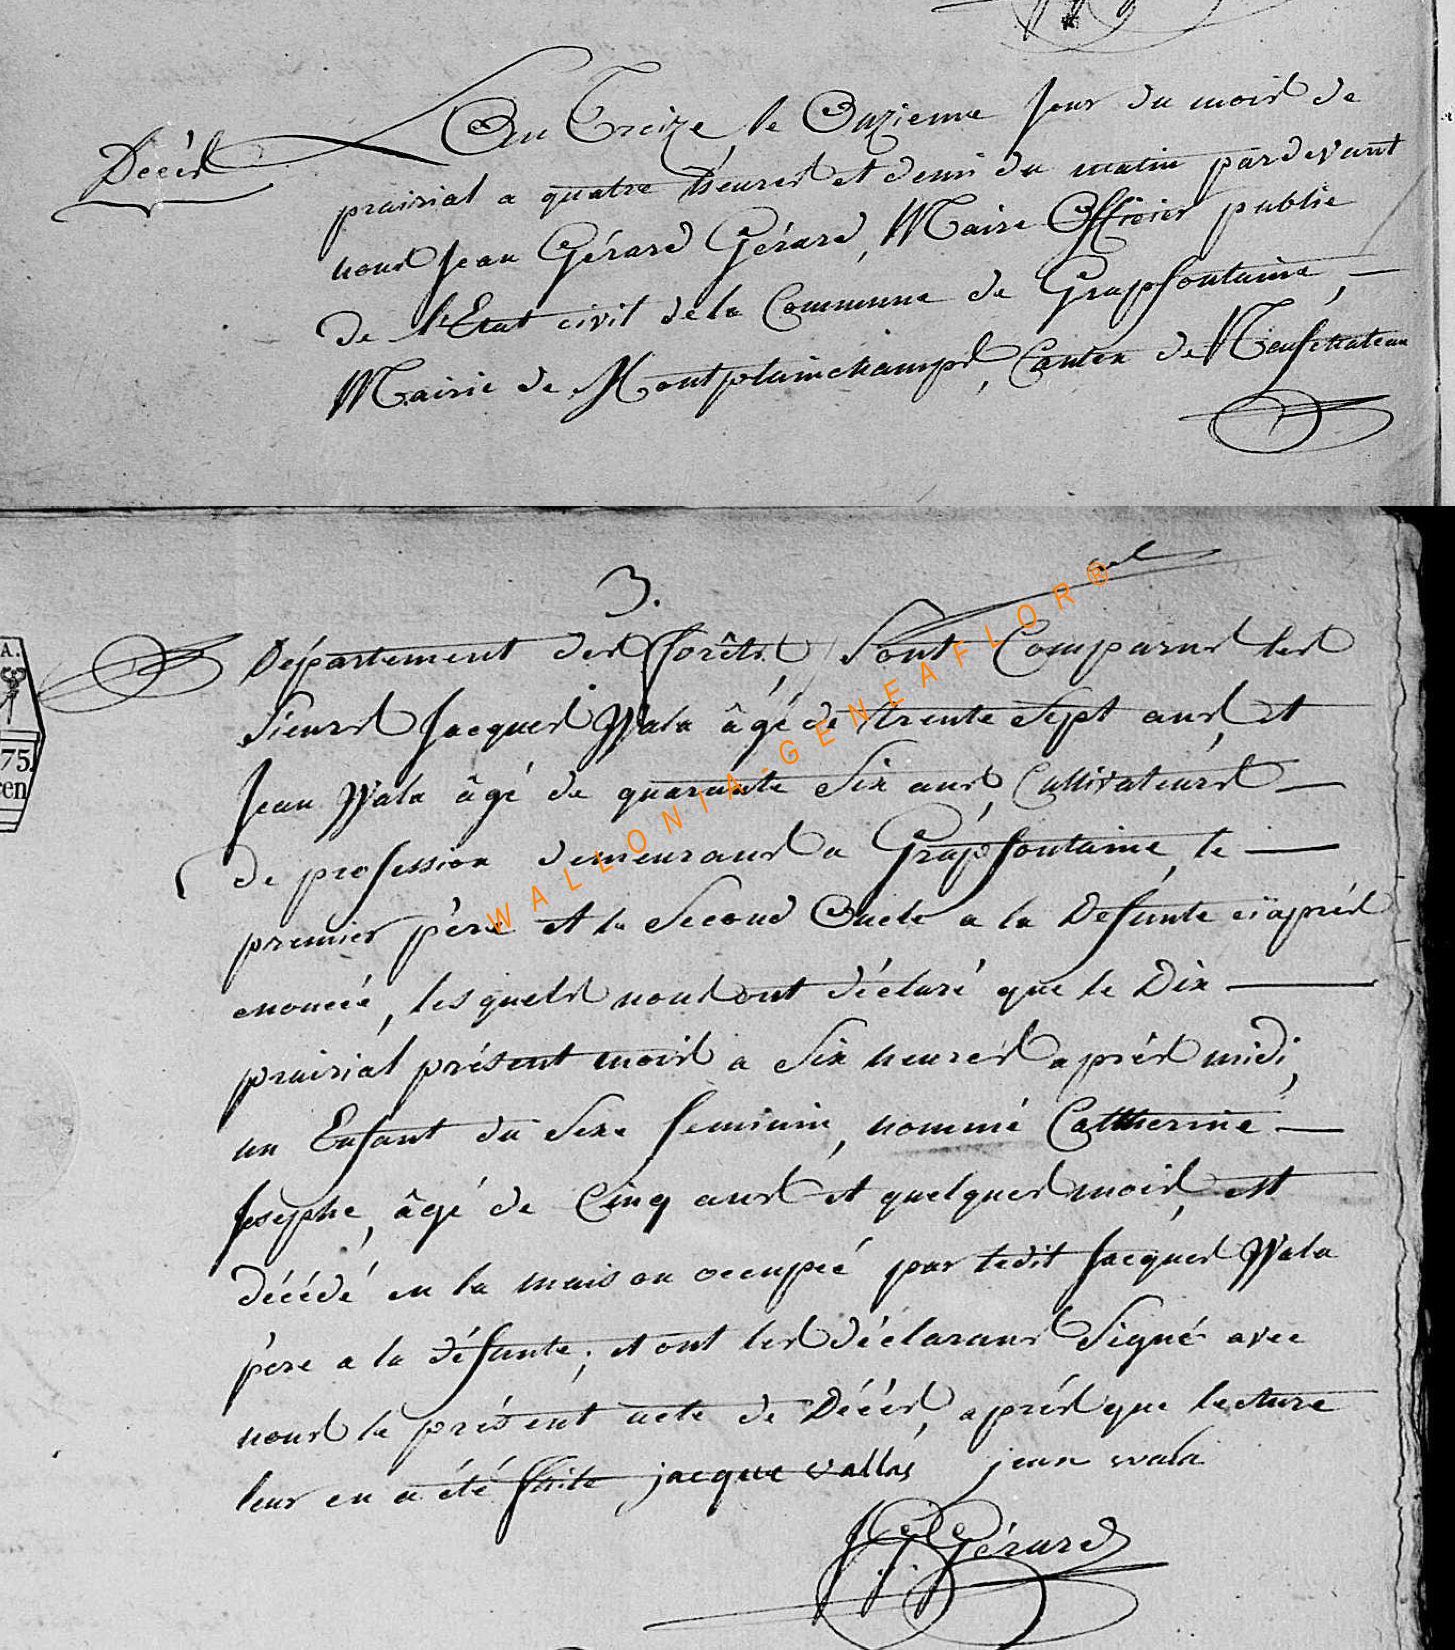 Décès
An Treize, le Onzieme jour du mois de
prairial a quatre heures et demi du matin pardevant
nous Jean Gérard Gérard, Maire Officier public
de l'Etat civil de la Commune de Grapfontaine, —
Mairie de Montplainchamps, Canton de Neufchateau
3.
Département des forêts, Sont Comparus les
Sieurs Jacques Wala âgé de trente Sept ans, et
Jean Wala âgé de quarante Six ans, Cultivateurs —
de profession demeurans a Grapfontaine, le —
premier père et le Second Oncle a la Defunte ciaprés
enoncée, lesquels nous ont déclaré que le Dix —
prairial présent mois a Six heures aprés midi,
un Enfant du Sexe feminin, nommé Catherine —
Josephe, âgé de Cinq ans et quelques mois, est
décédé en la maison occupée par ledit Jacques Wala
père a la défunte; et ont les déclarans Signé avec
nous le présent acte de Décés, aprés que lecture
leur en a été faite jacque vallas jean wala
JG Gérard
A.
75.
cen
WALLONIA-GENEAFLOR®